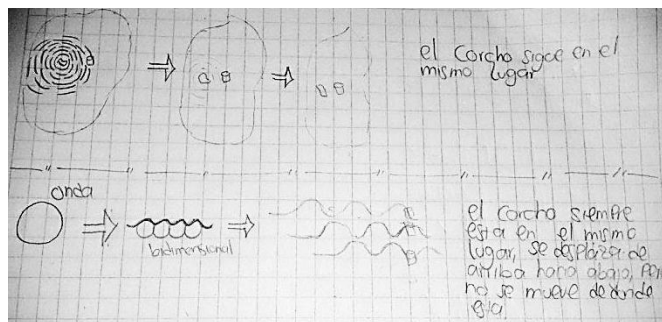 el corcho sigue en el
mismo lugar
onda
bidimensional
el corcho siempre
esta en el mismo
lugar, se desplaza de
arriba hacia abajo, Pero
no se mueve de donde
esta